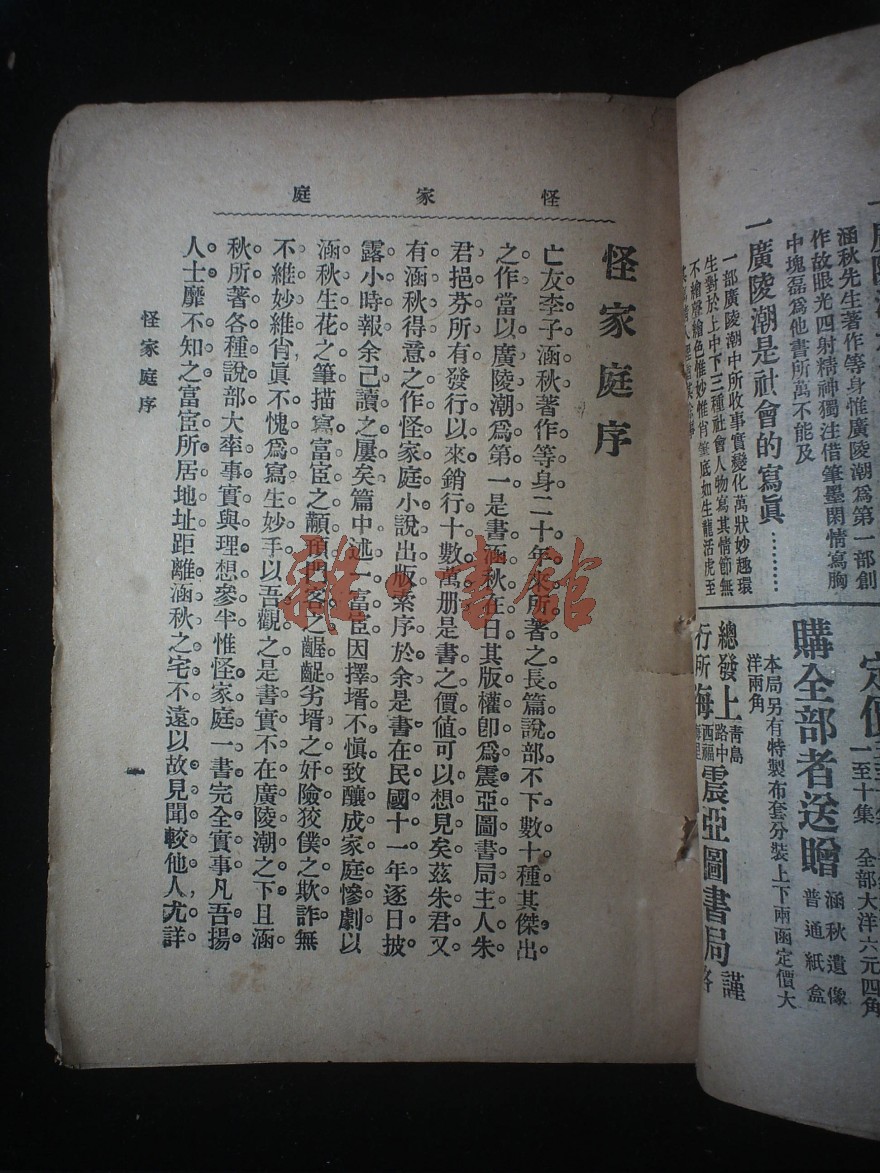 怪家庭
怪家庭序
亡友李子涵秋著作等身二十年來所著之長篇說部不下數十種其傑出
之作當以廣陵潮爲第一是書涵秋在日其版權卽爲震亞圖書局主人朱
君挹芬所有發行以來銷行十數萬册是書之價値可以想見矣茲朱君又
有涵秋得意之作怪家庭小說出版索序於余是書在民國十一年逐日披
露小時報余已讀之屢矣篇中述一富宦因擇壻不愼致釀成家庭慘劇以
涵秋生花之筆描寫富宦之顢頇門客之齷齪劣壻之奸險狡僕之欺詐無
不維妙維肖眞不愧爲寫生妙手以吾觀之是書實不在廣陵潮之下且涵
秋所著各種說部大率事實與理想參半惟怪家庭一書完全實事凡吾揚
人士靡不知之富宦所居地址距離涵秋之宅不遠以故見聞較他人尤詳
怪家庭序
一
雜·書館
涵秋先生著作等身惟廣陵潮爲第一部創
作故眼光四射精神獨注借筆墨閑情寫胸
中塊磊爲他書所萬不能及
一廣陵潮是社會的寫眞………
一部廣陵潮中所收事實變化萬狀妙趣環
生對於上中下三種社會人物寫其情節無
不繪聲繪色惟妙惟肖筆底如生龍活虎至
定價
一至十集 全部大洋六元四角
購全部者送贈
涵秋遺像
普通紙盒
本局另有特製布套分裝上下兩函定價大
洋兩角
總發
行所
上海
靑島
路中
西福
震亞圖書局
謹